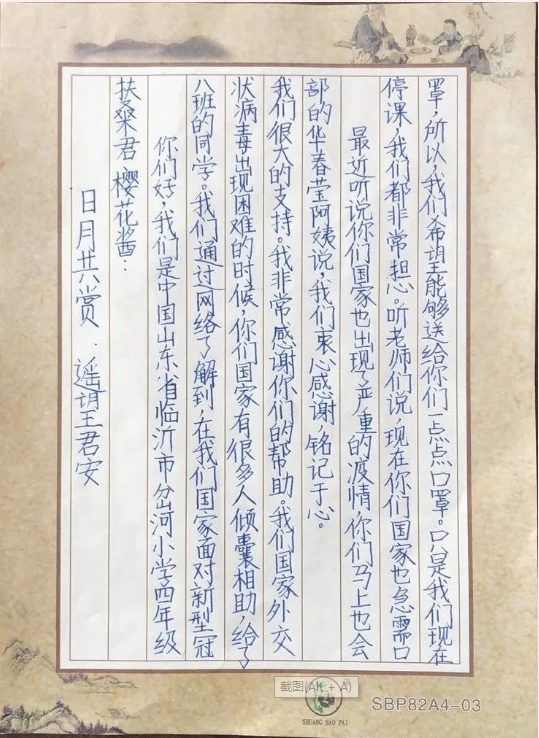 日月共赏·遥望君安
扶桑君 樱花酱:
你们好,我们是中国山东省临沂市岔河小学四年级
八班的同学。我们通过网络了解到,在我们国家面对新型冠
状病毒出现困难的时候,你们国家有很多人倾囊相助,给了
我们很大的支持。我非常感谢你们的帮助。我们国家外交
部的华春莹阿姨说,我们衷心感谢,铭记于心。
最近听说你们国家也出现了严重的疫情,你们马上也会
停课,我们都非常担心。听老师们说,现在你们国家也急需口
罩,所以,我们希望能够送给你们一点点口罩。只是我们现在
截图(Alt + A)
SHUANG BAO PAI
SBP82A4-03